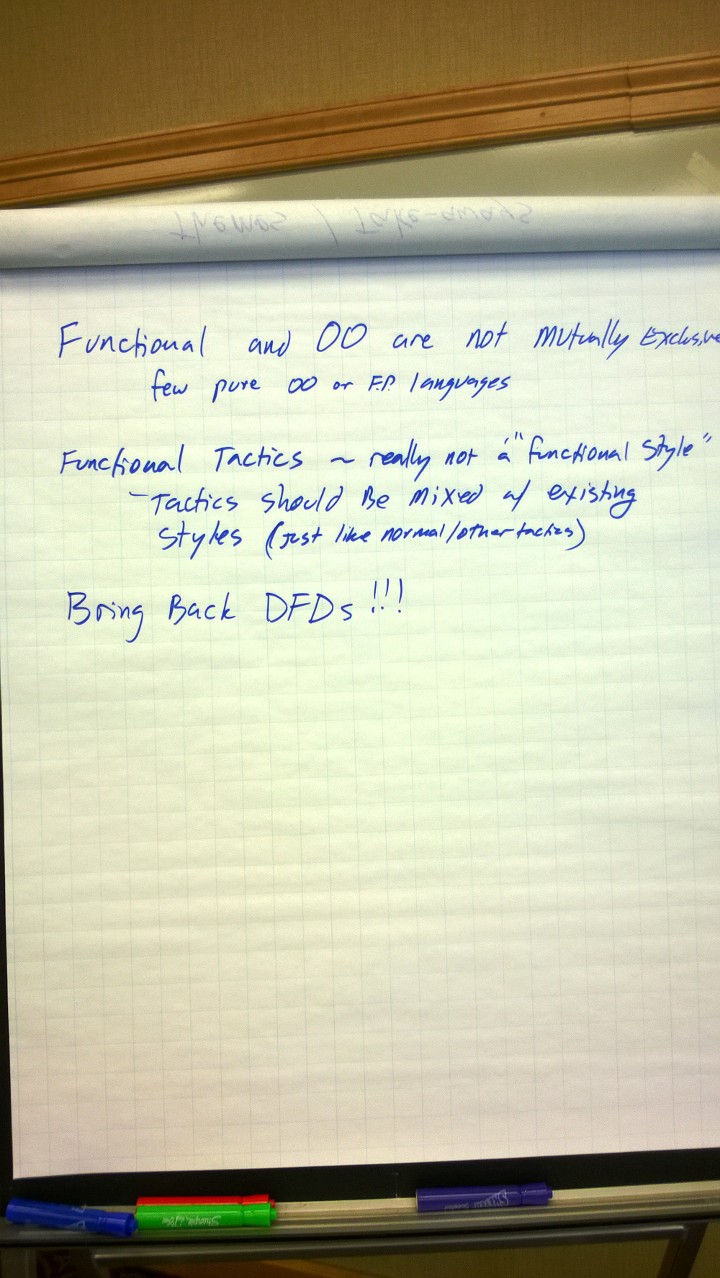 Themes / Take-aways
Functional and OO are not Mutually Exclusive
few pure OO or F.P. languages
Functional Tactics ~ really not a "functional style"
- Tactics should Be Mixed w/ existing
styles (just like normal/other tactics)
Bring Back DFDs!!!
Sharpie